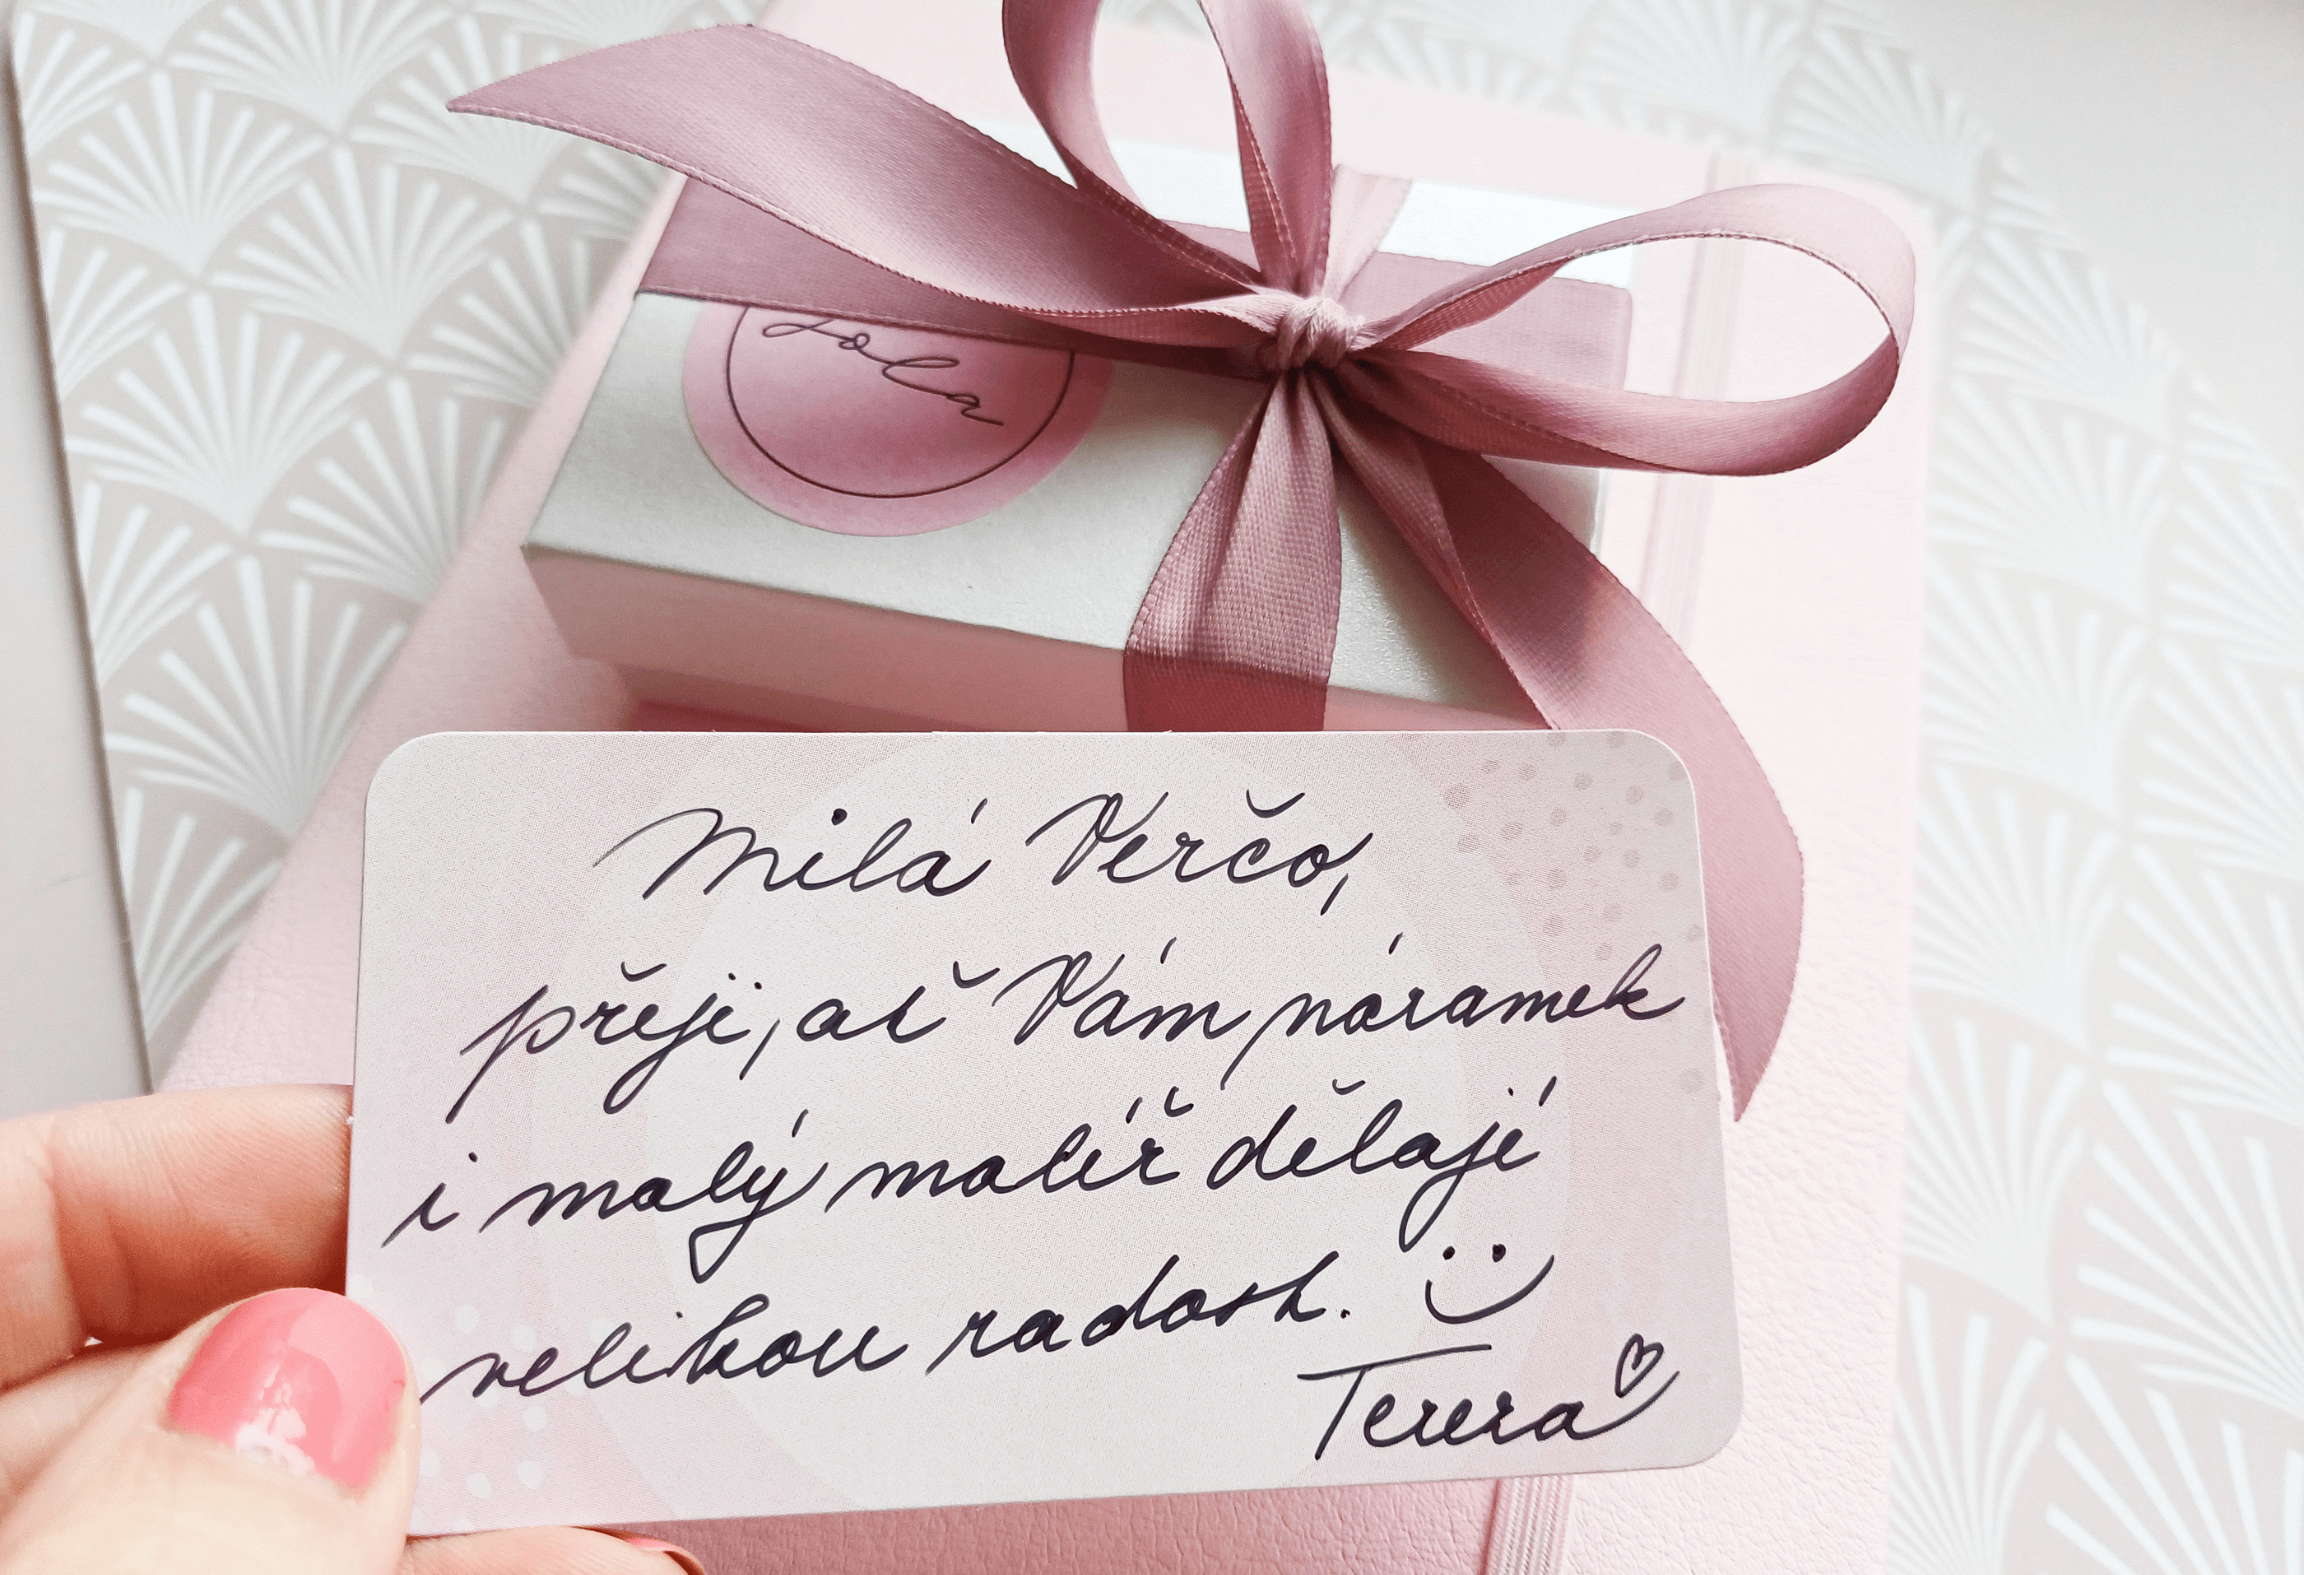 Milá Verčo,
přeji, ať Vám náramek
i malý malíř dělají
velikou radost.
Tereza